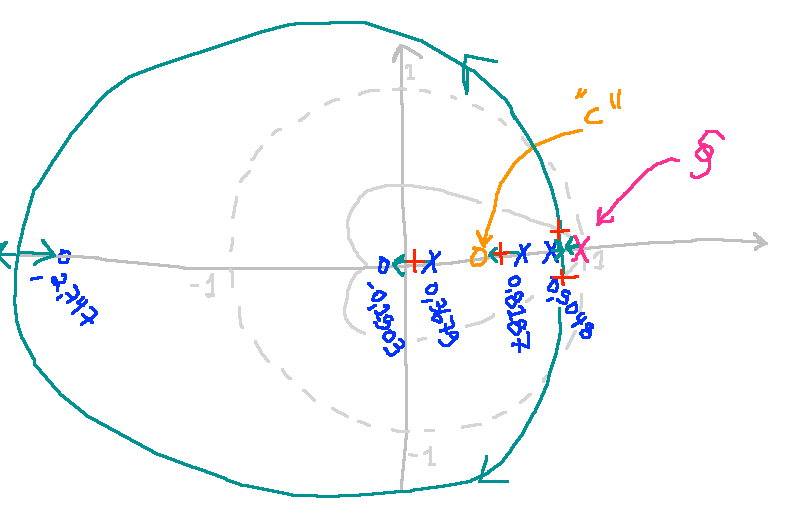 1
"c"
§
1
-1
-2,747
-0,2903
0,3679
0,8187
0,9048
-1